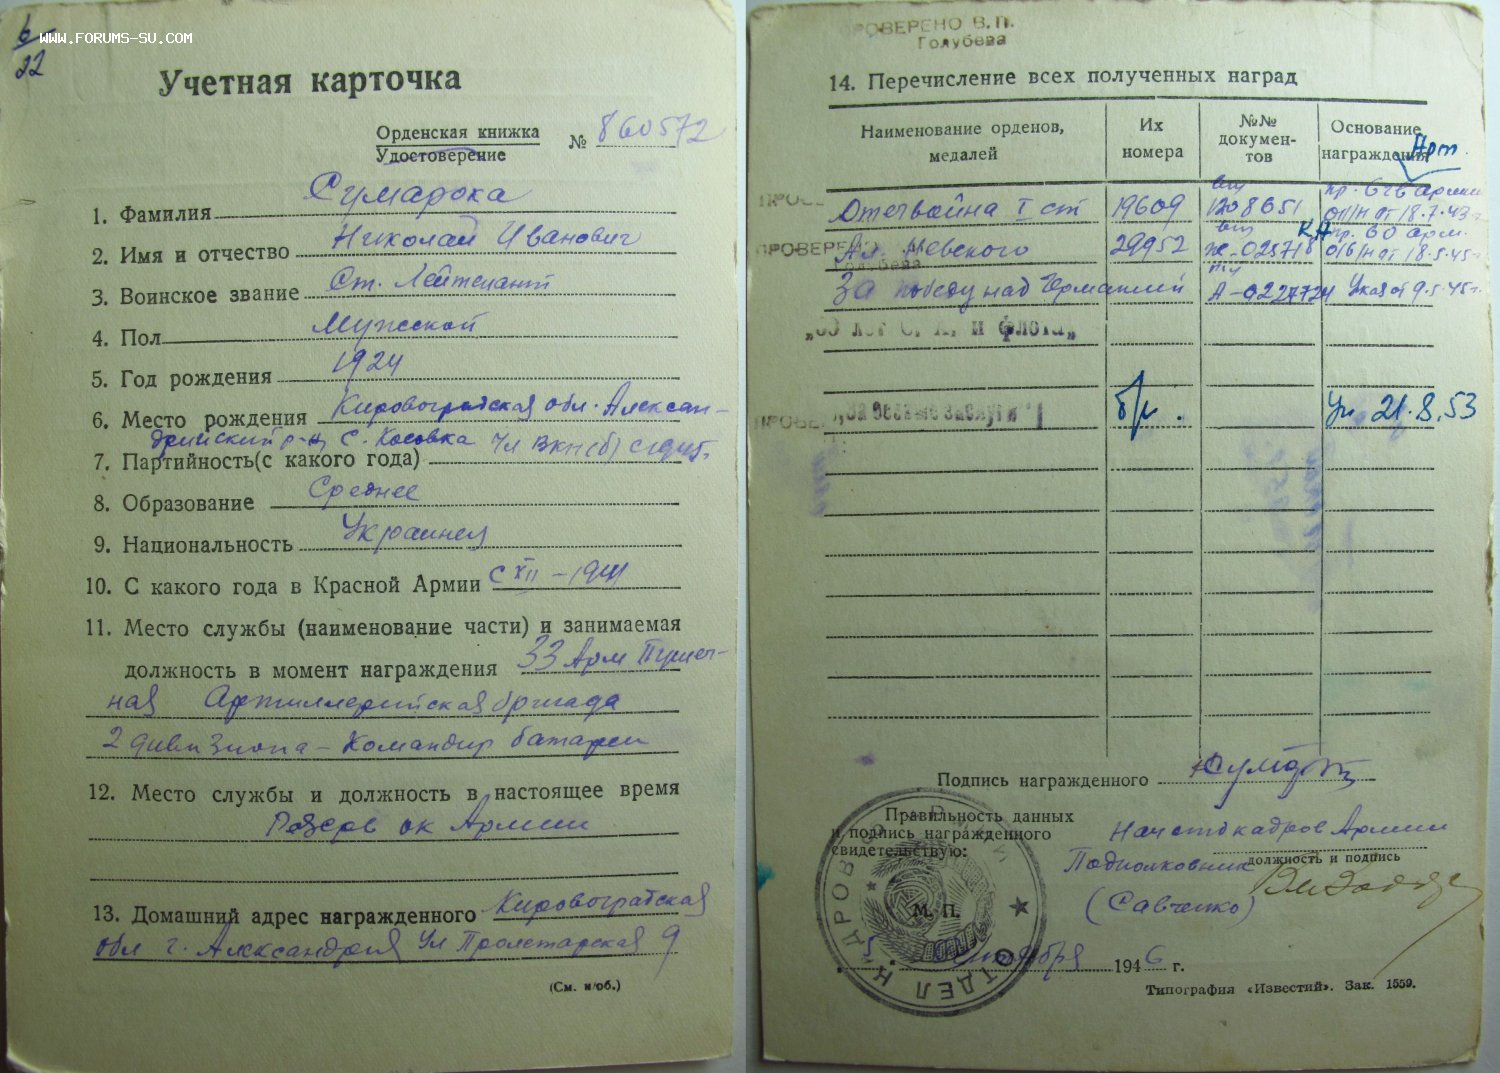 6
22
WWW.FORUMS-SU.COM
Учетная карточка
Орденская книжка
Удостоверение
№ 860572
Сумарока
1. Фамилия
Николай Иванович
2. Имя и отчество
Ст. Лейтенант
3. Воинское звание
Мужской
4. Пол
1924
5. Год рождения
Кировоградская обл. Алексан-
6. Место рождения
дрийский р-н с. Косовка
Чл ВКП(б) с 1945
7. Партийность (с какого года)
Среднее
8. Образование
Украинец
9. Национальность
10. С какого года в Красной Армии с XII - 1941
11. Место службы (наименование части) и занимаемая
должность в момент награждения 33 Арм Пушеч-
ная Артиллерийская бригада
2 дивизиона - Командир батареи
12. Место службы и должность в настоящее время
Резерв ок Армии
13. Домашний адрес награжденного Кировоградская
обл г. Александрия Ул Пролетарская 9
(См. н/об.)
ПРОВЕРЕНО В.П.
Голубева
14. Перечисление всех полученных наград
Наименование орденов,
медалей
Их
номера
№№
докумен-
тов
Основание
награждения
Арт
Отечвойна I ст 19609 вт 1208651 пр. 616 армии 011/н от 18.7.43 г
ПРОВЕРЕНО
Голубева
Ал. Невского 29952 ж-025718 КА пр. 60 арм. 016/н от 18.5.45 г.
За победу над Германией А-0227724 Указ от 9.5.45 г.
„30 лет С. А. и флота„
ПРОВЕ
„За боевые заслуги" б/н. Ук 21.8.53
Подпись награжденного
Правильность данных
и подпись награжденного
свидетельствую:
Нач отд кадров Армии
должность и подпись
Подполковник
(Савченко)
М. П.
ОТДЕЛ КАДРОВ
октября 1946 г.
Типография «Известий». Зак. 1559.